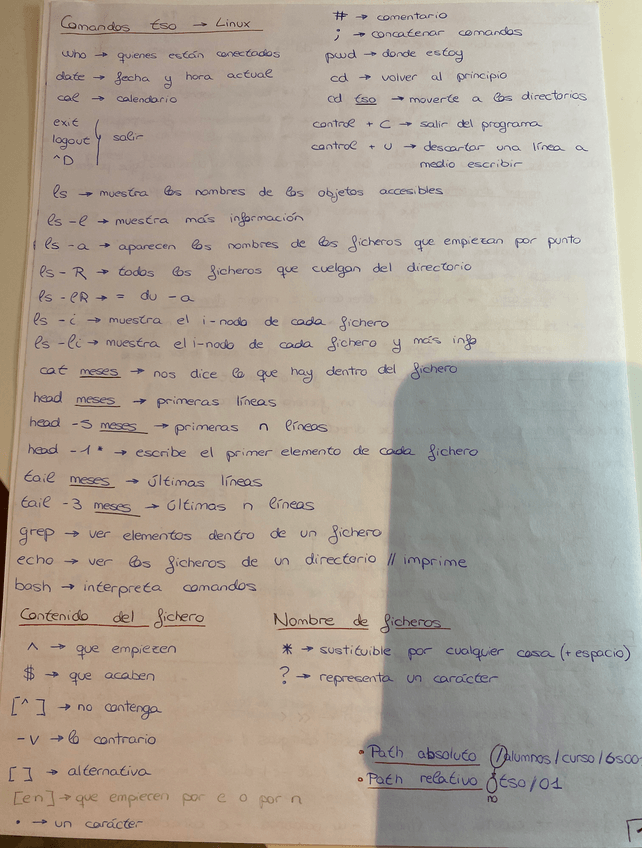 Comandos tso → Linux
who → quienes están conectados
date → fecha y hora actual
cal → calendario
exit
logout
^D
salir
# → comentario
; → concatenar comandos
pwd → donde estoy
cd → volver al principio
cd tso → moverte a los directorios
control + C → salir del programa
control + U → descartar una línea a
medio escribir
ls → muestra los nombres de los objetos accesibles
ls -l → muestra más información
ls -a → aparecen los nombres de los ficheros que empiezan por punto
ls -R → todos los ficheros que cuelgan del directorio
ls -lR → = du -a
ls -i → muestra el i-nodo de cada fichero
ls -li → muestra el i-nodo de cada fichero y más info
cat meses → nos dice lo que hay dentro del fichero
head meses → primeras líneas
head -5 meses → primeras n líneas
head -1 * → escribe el primer elemento de cada fichero
tail meses → últimas líneas
tail -3 meses → últimas n líneas
grep → ver elementos dentro de un fichero
echo → ver los ficheros de un directorio // imprime
bash → interpreta comandos
Contenido del fichero
^ → que empiezen
$ → que acaben
[^ ] → no contenga
-v → lo contrario
[ ] → alternativa
[en] → que empiecen por e o por n
• → un carácter
Nombre de ficheros
* → sustituible por cualquier cosa (+ espacio)
? → representa un carácter
• Path absoluto /alumnos/curso/6s00
• Path relativo tso/01
no